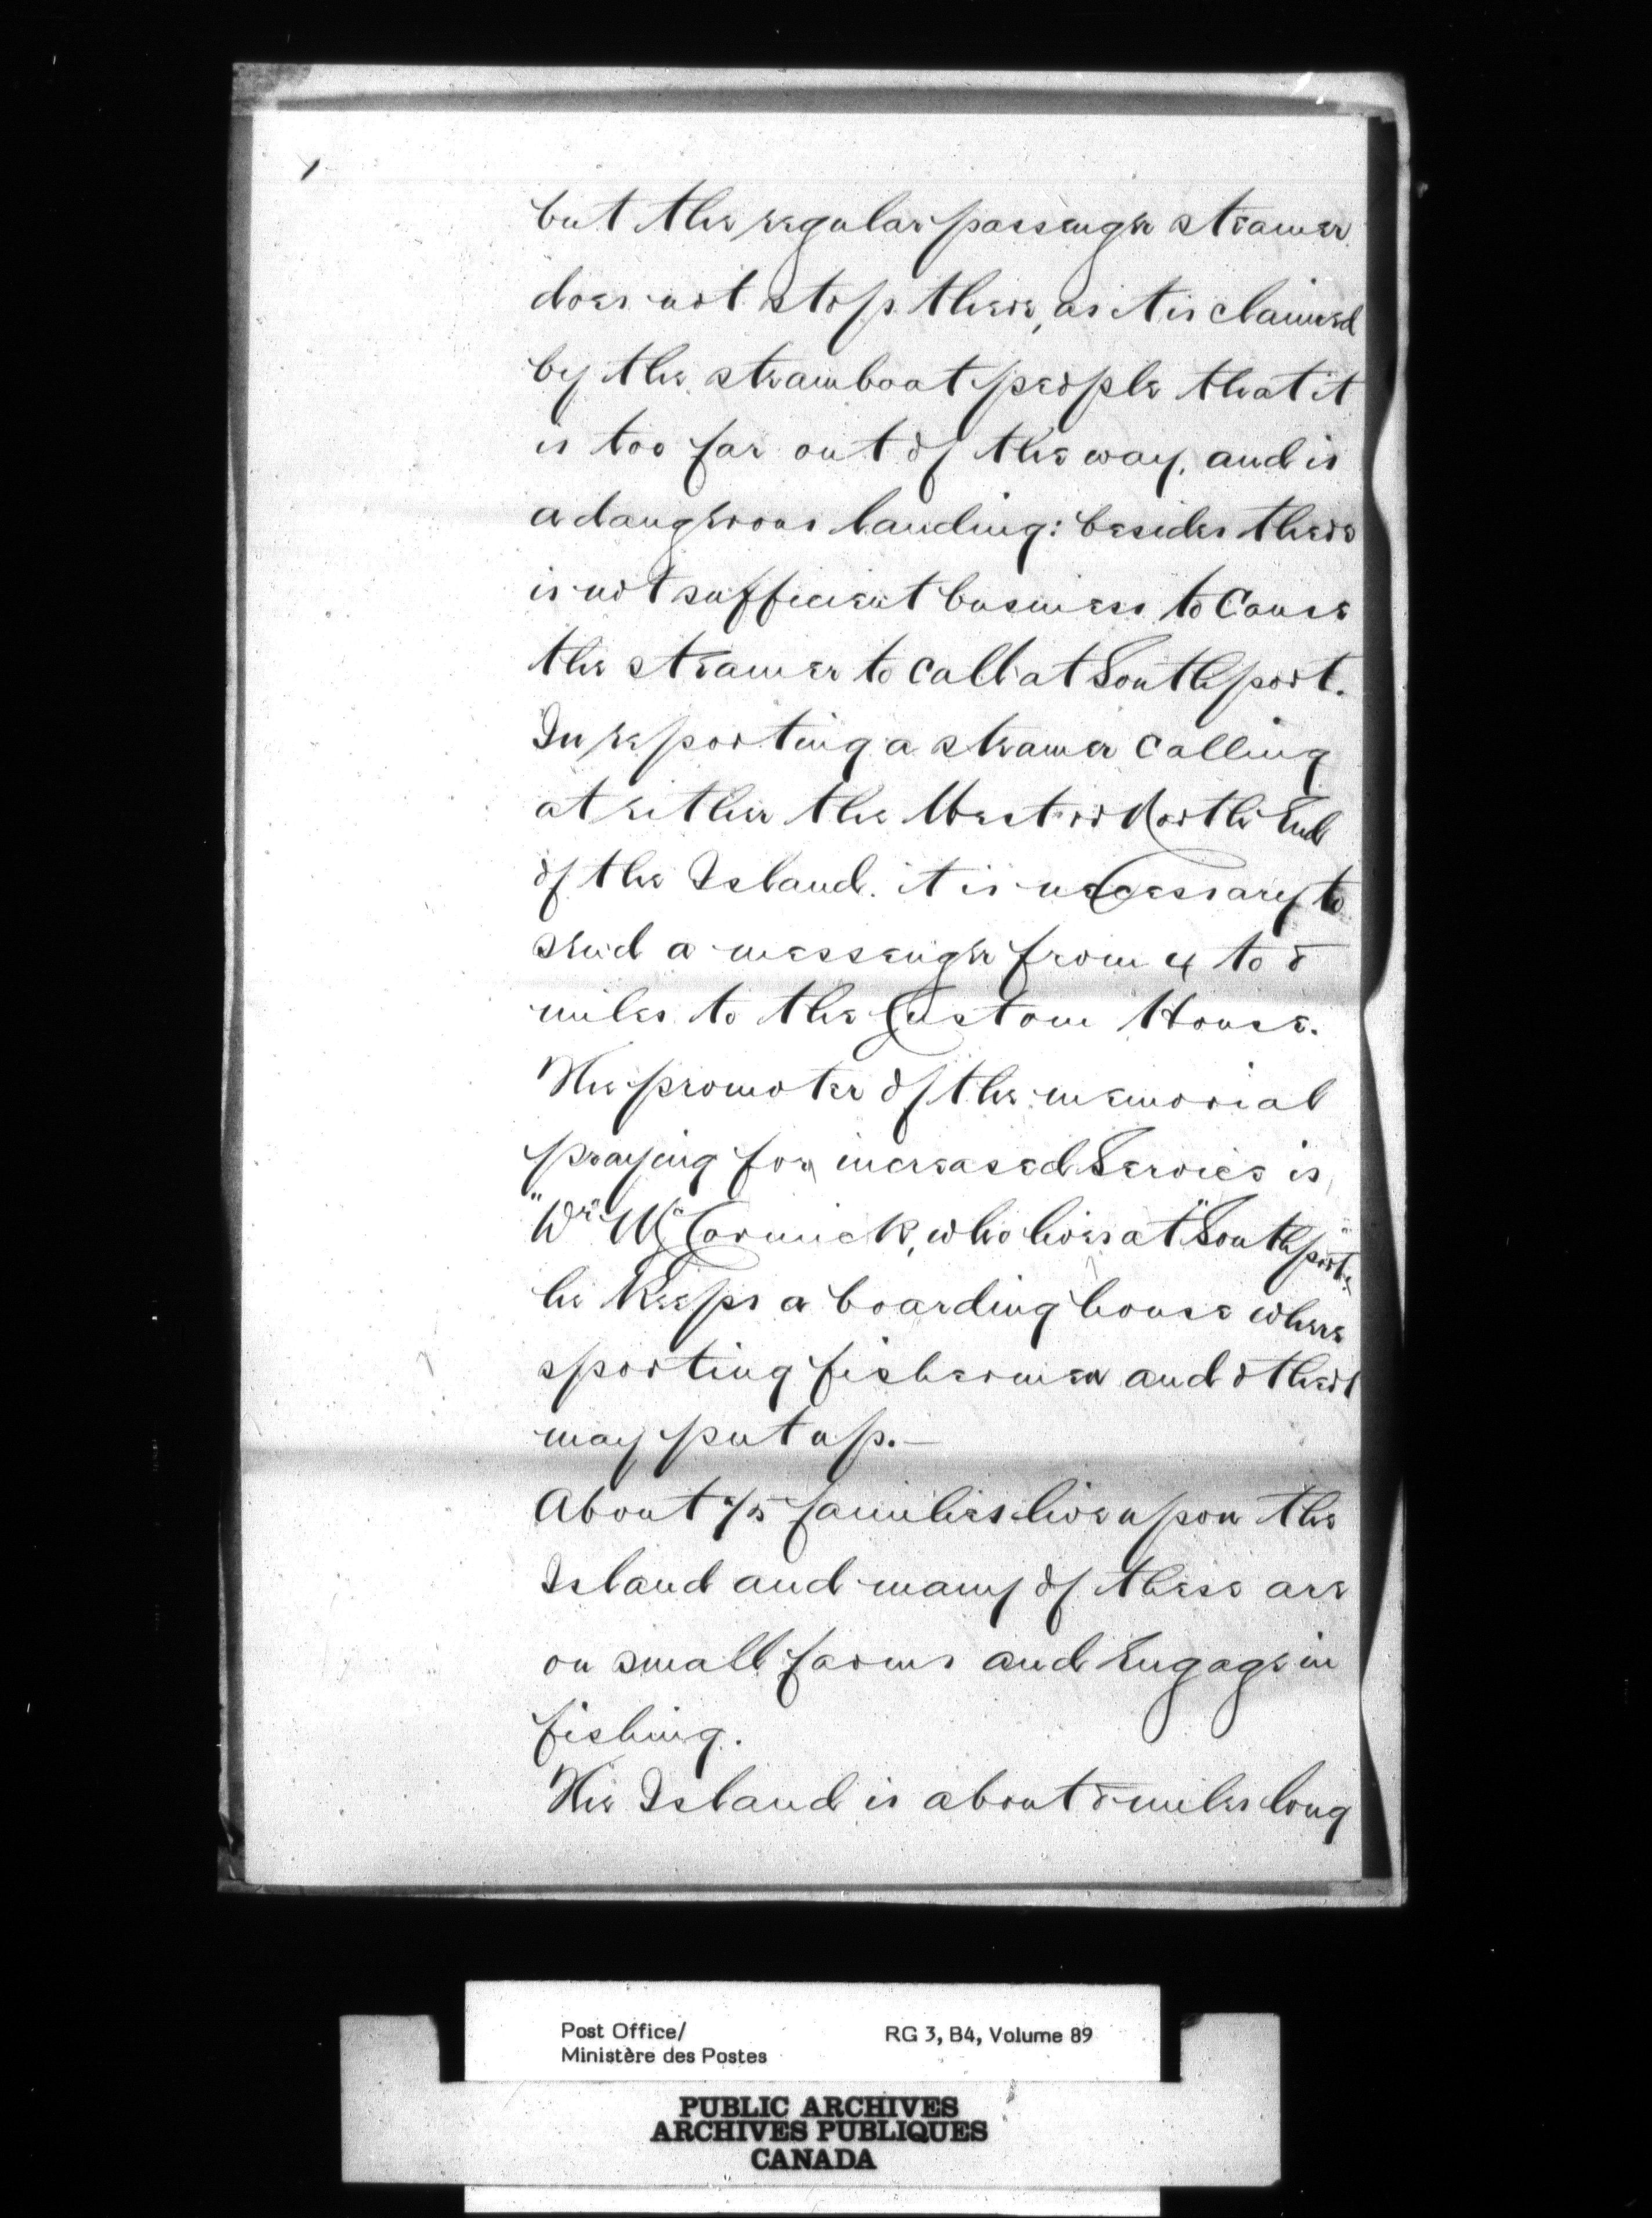 but the regular passenger steamer
does not stop there, as it is claimed
by the steamboat people that it
is too far out of the way, and is
a dangerous landing: besides there
is not sufficient business to Cause
the steamer to Call at Southport.
In reporting a steamer Calling
at either the West or North End
of the Island. it is necessary to
send a messenger from 4 to 8
miles to the Custom House.
The promoter of the memorial
praying for increased Service is
McCormick, who lives at "Southport"
he Keeps a boarding house where
sporting fishermen and others
may put up.—
About 75 families live upon the
Island and many of these are
on small farms and Engage in
fishing.
The Island is about 8 miles long
Post Office/
Ministère des Postes
RG 3, B4, Volume 89
PUBLIC ARCHIVES
ARCHIVES PUBLIQUES
CANADA